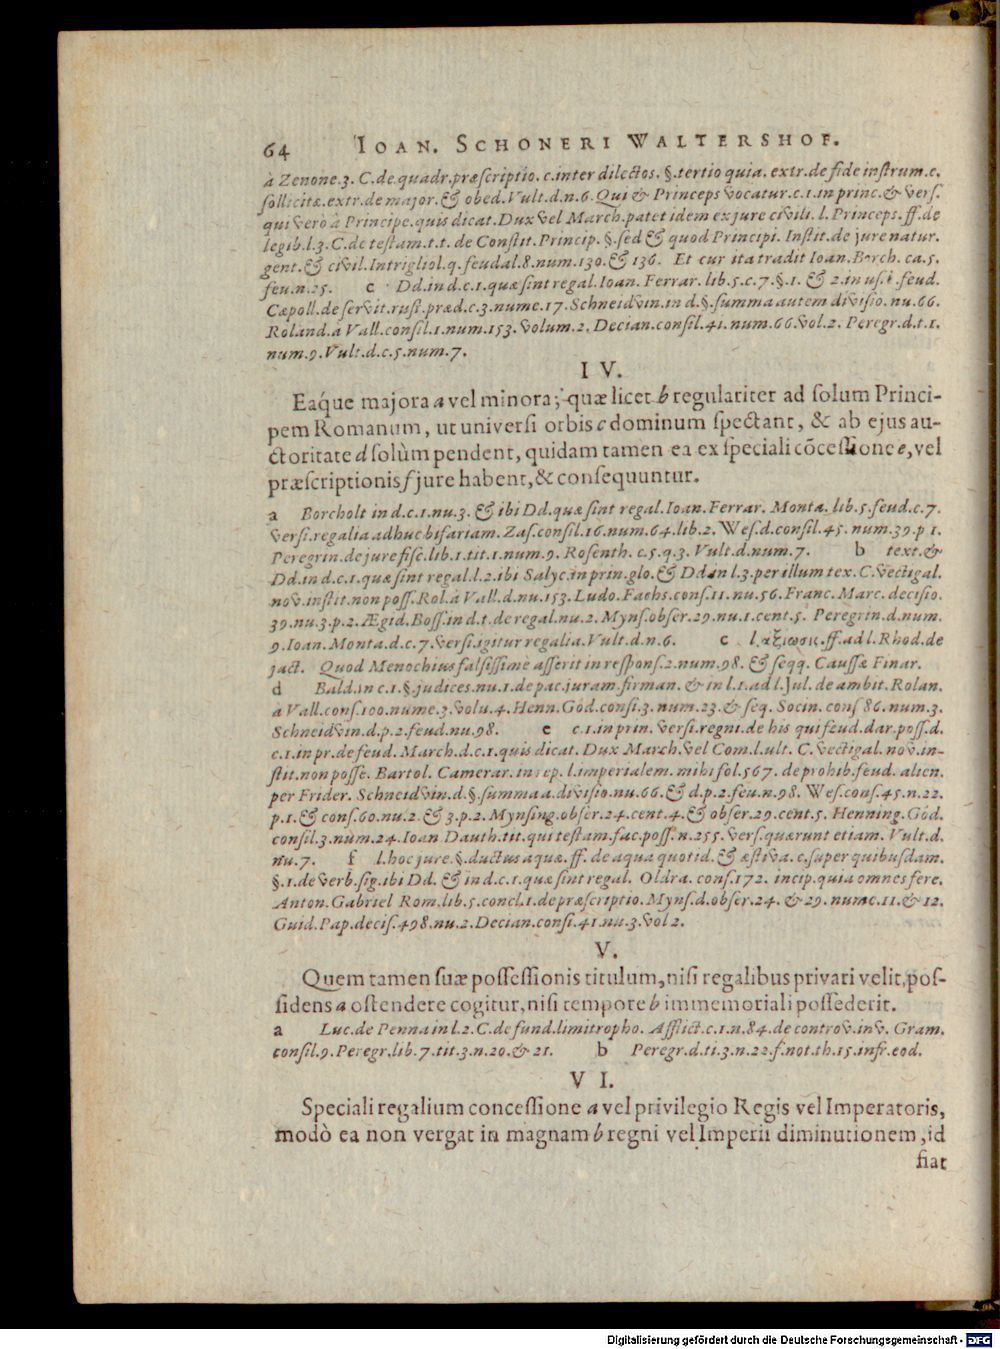 64 IOAN. SCHONERI WALTERSHOF.
à Zenone.3. C.de.quadr.præscriptio. c.inter dilectos. §.tertio quia. extr.de fide instrum.c.
sollicitæ.extr.de major.& obed.Vult.d.n.6. Qui & Princeps vocatur.c.1.in princ.& vers.
qui verò à Principe.quis dicat.Dux vel March.patet idem ex jure civili. l. Princeps. ff.de
legib.l.3.C.de testam.t.t. de Constit.Princip. §.sed & quod Principi. Instit.de jure natur.
gent.& civil.Intrigliol.q.feudal.8.num.130.& 136. Et cur ita tradit Ioan.Borch. ca.5.
feu.n.25. c Dd.in d.c.1.quæ sint regal.Ioan. Ferrar. lib.5.c.7.§.1. & 2.in usib.feud.
Cæpoll.de servit.rust.præd.c.3.nume.17.Schneidvin.in d.§.summa autem divisio. nu.66.
Roland.a Vall.consil.1.num.153. volum.2. Decian.consil.41.num.66.vol.2. Peregr.d.t.1.
num.9.Vult.d.c.5.num.7.
IV.
Eáque majora a vel minora; quæ licet b regulariter ad solum Princi-
pem Romanum, ut universi orbis c dominum spectant, & ab ejus au-
ctoritate d solùm pendent, quidam tamen ea ex speciali cōcessione e, vel
præscriptionis f jure habent, & consequuntur.
a Borcholt in d.c.1.nu.3. & ibi Dd.quæ sint regal.Ioan. Ferrar. Monta. lib.5.feud.c.7.
versi.regalia adhuc bifariam. Zas.consil.16.num.64.lib.2. Wes.d.consil.45. num.39.p 1.
Peregrin.de jure fisc.lib.1.tit.1.num.9. Rosenth. c.5.q.3. Vult.d.num.7. b text.&
Dd.in d.c.1.quæ sint regal.l.2.ibi Salyc.in prin.glo.& Dd.in l.3.per illum tex. C.vectigal.
nov.instit.non poss.Rol.à Vall.d.nu.153.Ludo.Fachs.cons.11.nu.56.Franc.Marc.decisio.
39.nu.3.p.2.Ægid.Boss.in d.t.de regal.nu.2.Myns.obser.29.nu.1.cent.5. Peregrin.d.num.
9.Ioan.Monta.d.c.7.versi.igitur regalia.Vult.d.n.6. c l.ἀξίωσις.ff.ad l.Rhod.de
jact. Quod Menochius falsissimè asserit in respons.2.num.98. & seqq. Caussæ Finar.
d Bald.in c.1.§.judices.nu.1.de pac.juram.firman. & in l.1.ad l.Jul.de ambit.Rolan.
a Vall.cons.100.nume.3.volu.4.Henn.God.consi.3.num.23.& seq. Socin. cons 86.num.3.
Schneidvin.d.p.2.feud.nu.98. e c.1.in prin. versi.regni.de his qui feud.dar.poss.d.
c.1.in pr.de feud. March.d.c.1.quis dicat. Dux March.vel Com.l.ult. C.vectigal.nov.in-
stit.non posse. Bartol. Camerar. in rep. l.imperialem. mihi fol.567. de prohib.feud. alien.
per Frider. Schneidvin.d.§.summa a.divisio.nu.66.& d.p.2.feu.n.98. Wes.cons.45.n.22.
p.1.& cons.60.nu.2.& 3.p.2.Mynsing.obser.24.cent.4.& obser.29.cent.5. Henning.God.
consil.3.num.24.Ioan Dauth.tit.qui testam.fac.poss.n.255.vers.quærunt etiam. Vult.d.
nu.7. f l.hoc jure.§.ductus aquæ. ff. de aqua quotid.& æstiva.c.super quibusdam.
§.1.de verb.sig.ibi Dd. & in d.c.1.quæ sint regal. Oldra. cons.172. incip.quia omnes fere.
Anton.Gabriel Rom.lib.5.concl.1.de præscriptio.Myns.d.obser.24. & 29. nume.11.& 12.
Guid.Pap.decis.498.nu.2.Decian.consi.41.nu.3.vol 2.
V.
Quem tamen suæ possessionis titulum, nisi regalibus privari velit, pos-
sidens a ostendere cogitur, nisi tempore b immemoriali possederit.
a Luc.de Penna in l.2.C.de fund.limitropho. Afflict.c.1.n.84.de controv.inv. Gram.
consil.9.Peregr.lib.7.tit.3.n.20.& 21. b Peregr.d.ti.3.n.22.f.not.th.15.infr.eod.
VI.
Speciali regalium concessione a vel privilegio Regis vel Imperatoris,
modò ea non vergat in magnam b regni vel Imperii diminutionem, id
fiat
Digitalisierung gefördert durch die Deutsche Forschungsgemeinschaft - DFG